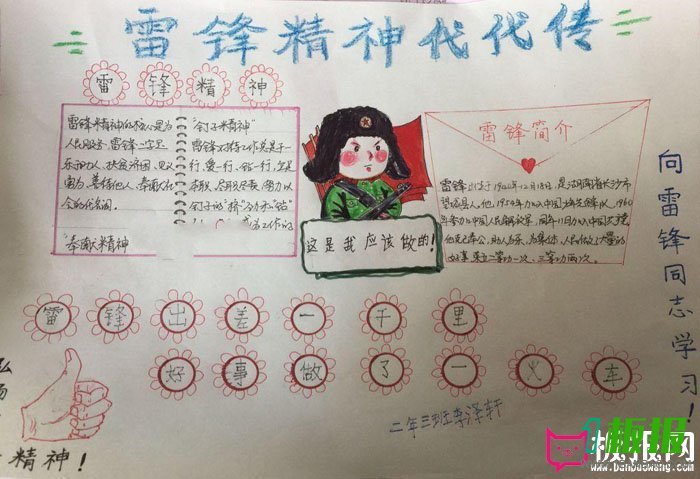 雷锋精神代代传
雷锋精神
雷锋精神的核心是为
人民服务。雷锋二字是
乐于助人、扶贫济困、见义
勇为、善待他人、奉献社
会的代名词。
"奉献"精神
"钉子精神"
行、爱一行、钻一行
钉子的"挤"劲和"钻"
这是我应该做的!
雷锋简介
雷锋出生于1940年12月18日,是湖南省长沙市
望城县人。他,1954年加入中国少年先锋队,1960
年参加中国人民解放军,同年11月加入中国共产党
他克己奉公、助人为乐,为集体、人民做了大量的
好事,荣立二等功一次、三等功两次。
向雷锋同志学习!
雷锋出差一千里
好事做了一火车
弘
扬
精神!
二年三班李泽轩
板报网
www.banbaowang.com